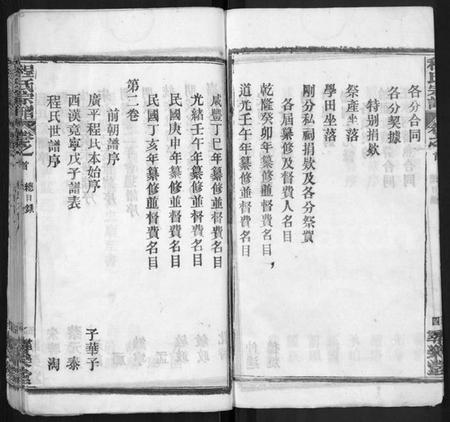 各分合同
各分契據
特別捐欵
祭產坐落
學田坐落
剛分私祠捐欵及各分祭貲
各屆纂修及督費人名目
乾隆癸卯年纂修並督費名目
道光壬午年纂修並督費名目
咸豐丁巳年纂修並督費名目
光緒壬午年纂修並督費名目
民國庚申年纂修並督費名目
民國丁亥年纂修並督費名目
第二卷
前朝譜序
廣平程氏本始序 子華子
西漢竟寧戊子譜表 泰
程氏世譜序 淘
程氏宗譜
卷之首
總目錄
四